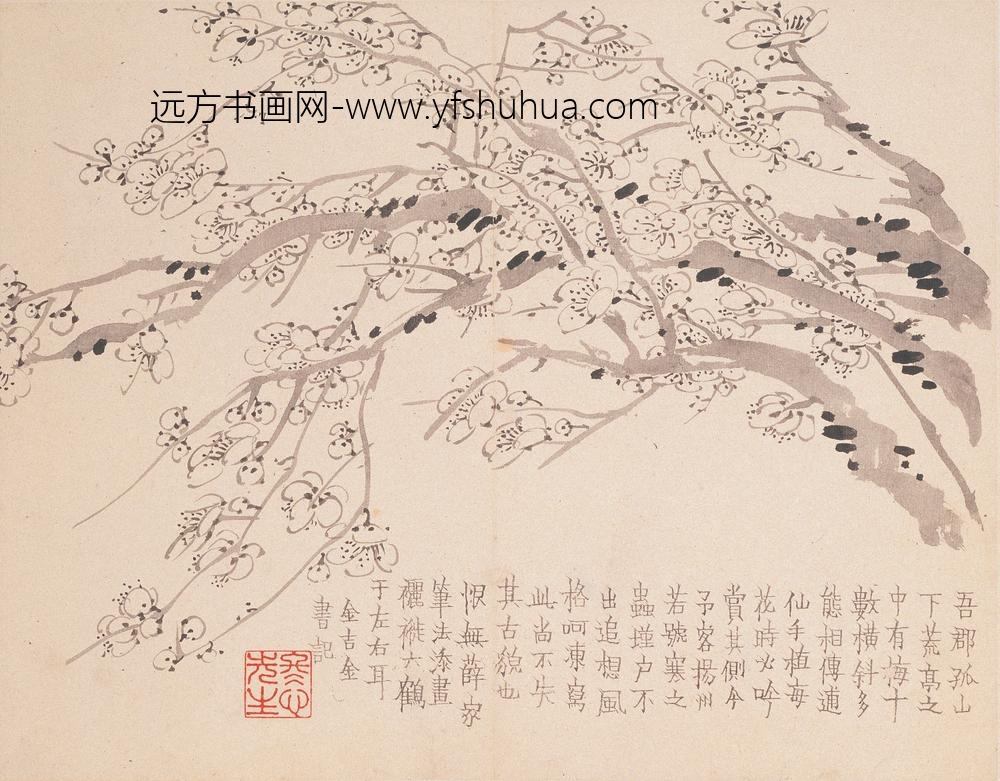 远方书画网-www.yfshuhua.com
吾郡孤山
下荒亭之
中有梅十
數橫斜多
態相傳逋
仙手植每
花時必吟
賞其側今
予客揚州
若號寒之
蟲墐户不
出追想風
格呵凍寫
此尚不失
其古貌也
恨無薛家
筆法添畫
褵褷六鶴
于左右耳
金吉金
書記
冬心先生